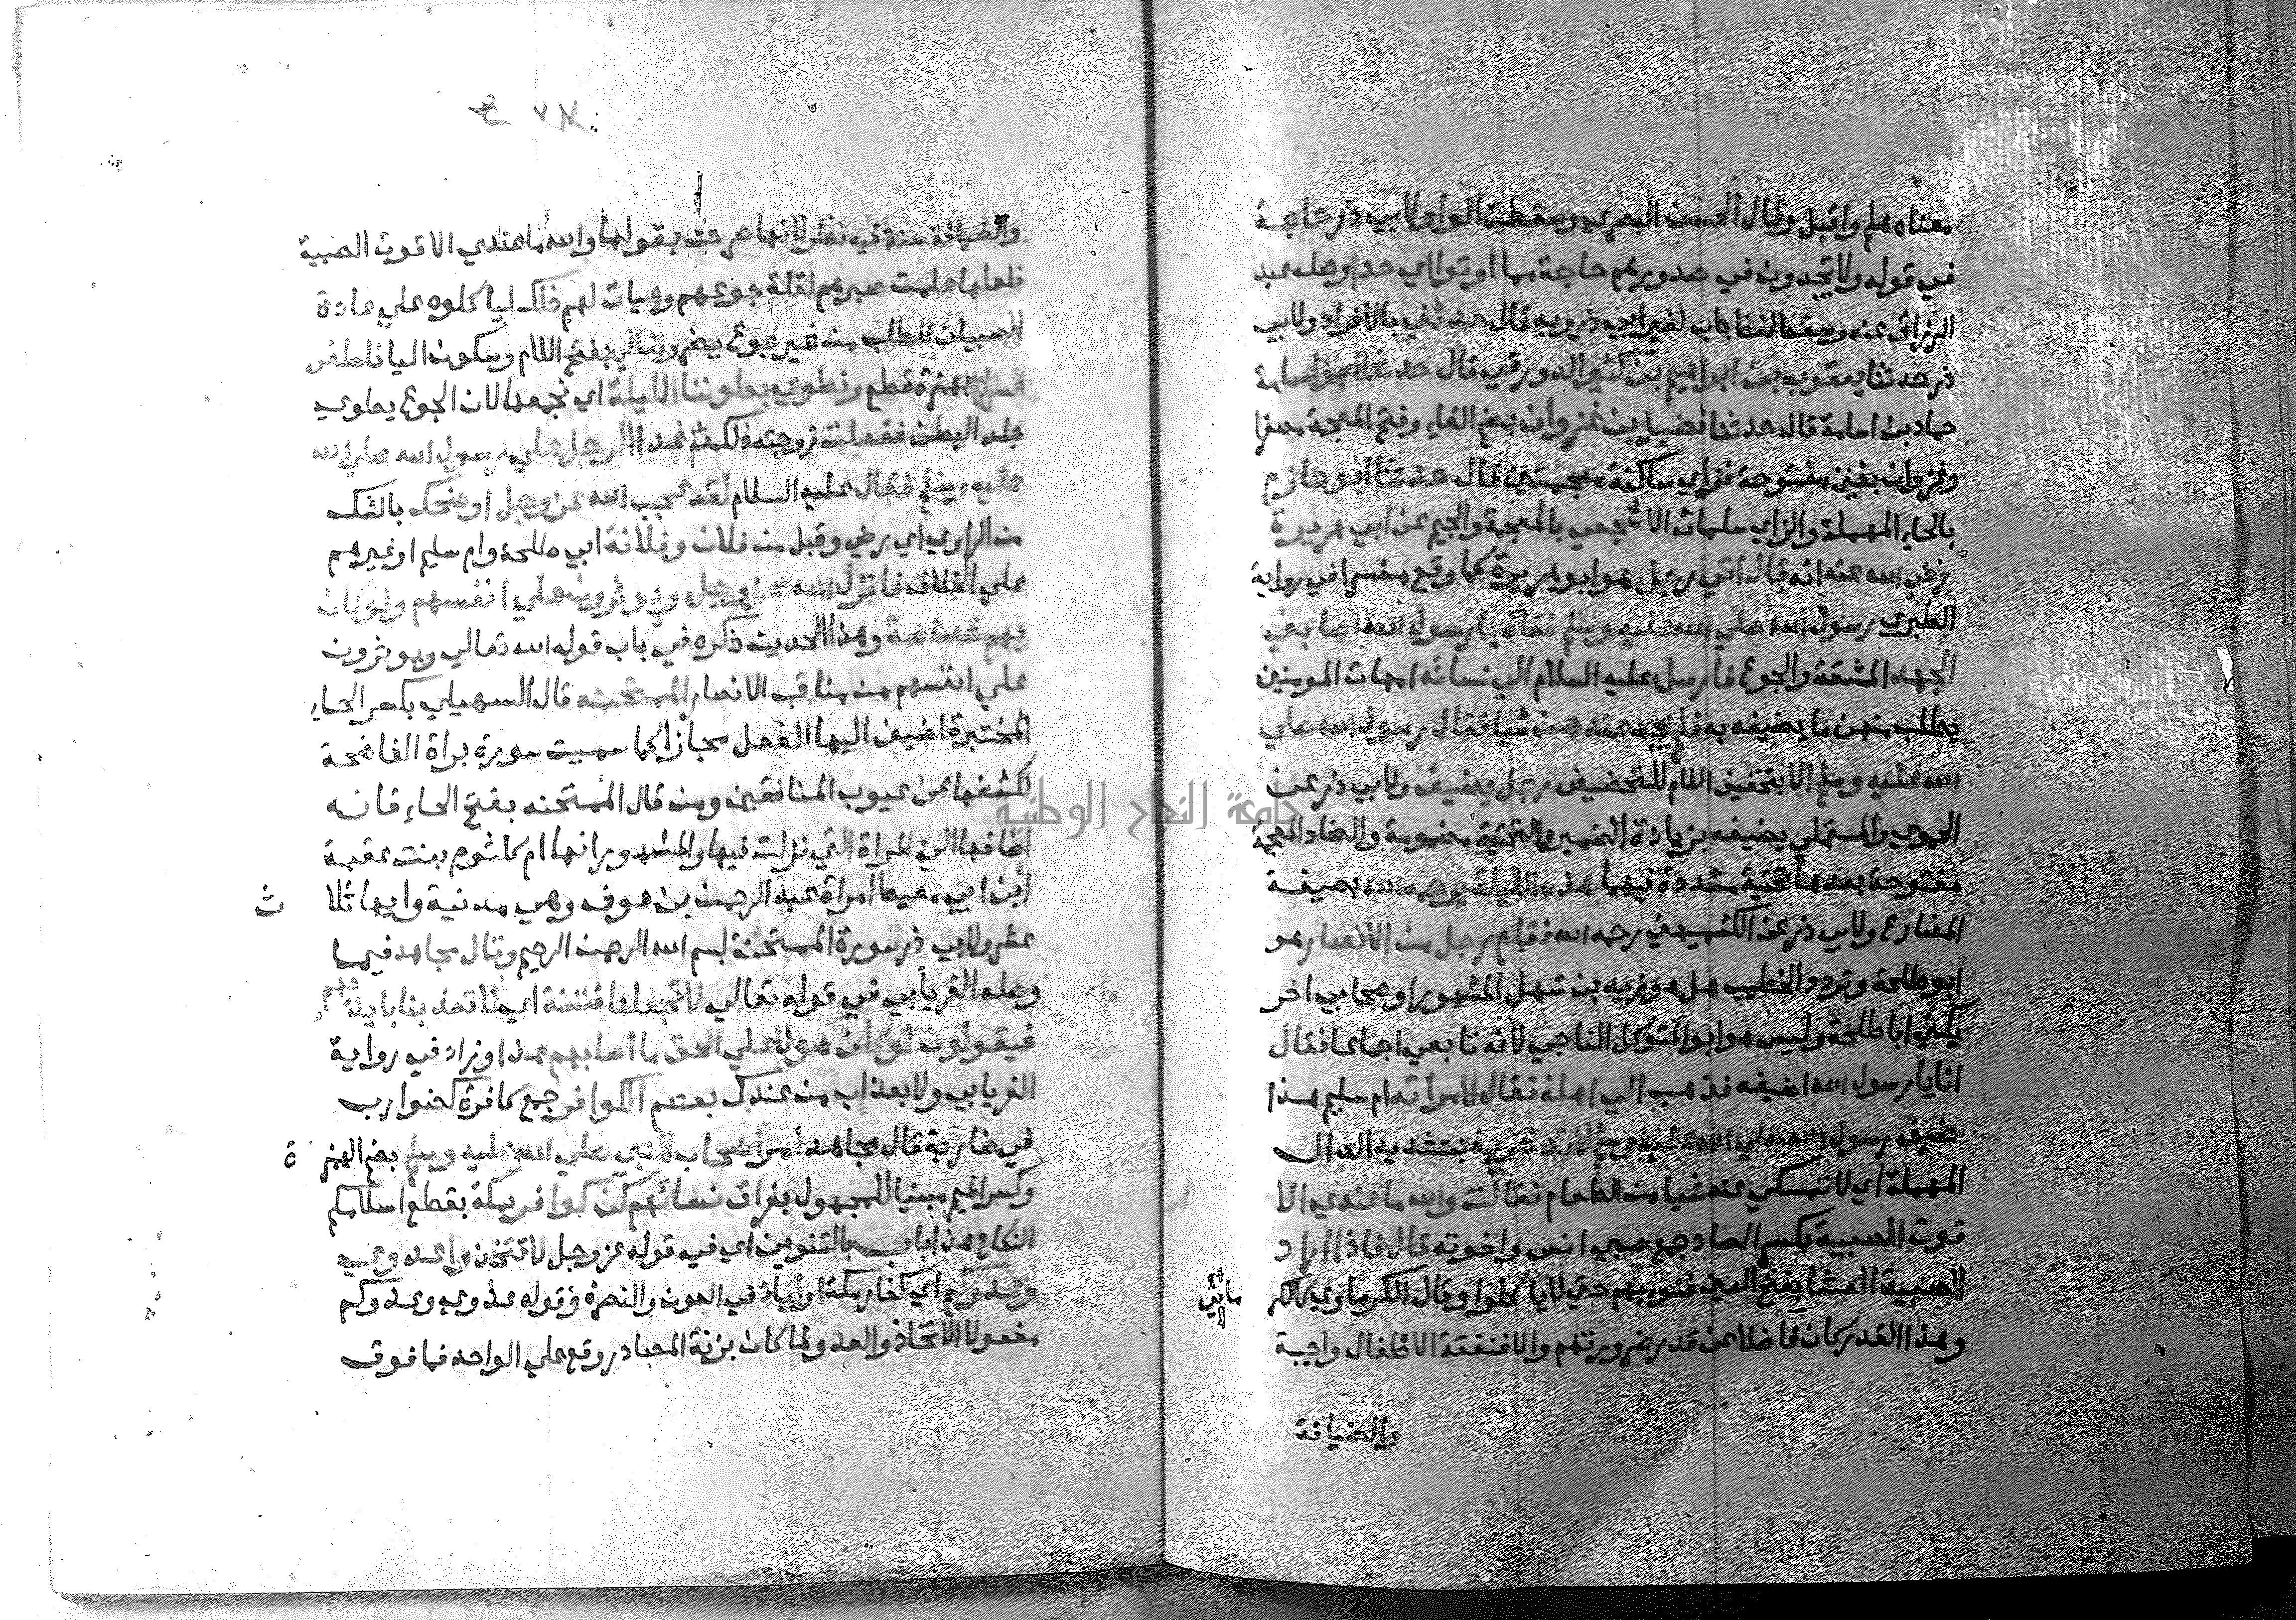 معناه هلم واقبل وقال الحسن البصري وسقطت الواو لابي ذر حاجة
في قوله ولا تجدون في صدورهم حاجة مما اوتوا اي حسدا وصله عبد
الرزاق عنه وسقط لفظ باب لغير ابي ذر وبه قال حدثني بالافراد ولابي
ذر حدثنا يعقوب بن ابراهيم بن كثير الدورقي قال حدثنا ابو اسامة
حماد بن اسامة قال حدثنا فضيل بن غزوان بضم الفاء وفتح المعجمة مصغرا
وغزوان بغين مفتوحة فزاي ساكنة معجمتين قال حدثنا ابو حازم
بالحاء المهملة والزاي سلمان الاشجعي بالمعجمة والجيم عن ابي هريرة
رضي الله عنه انه قال اتي رجل هو ابو هريرة كما وقع مفسرا في رواية
الطبري رسول الله صلي الله عليه وسلم فقال يا رسول الله اصابني
الجهد المشقة والجوع فارسل عليه السلام الي نسائه امهات المومنين
يطلب منهن ما يضيفه به فلم يجد عندهن شيا فقال رسول الله صلي
الله عليه وسلم الا بتخفيف اللام للتحضيض رجل يضيف ولابي ذر عن
الحموي والمستملي يضيفه بزيادة الضمير والتحتية مضمومة والضاد المعجمة
مفتوحة بعدها تحتية مشددة فيهما هذه الليلة يرحمه الله بصيغة
المضارع ولابي ذر عن الكشميهني رحمه الله فقام رجل من الانصار هو
ابو طلحة وتردد الخطيب هل هو زيد بن سهل المشهور او صحابي اخر
يكني ابا طلحة وليس هو ابو المتوكل الناجي لانه تابعي اجماعا فقال
انا يا رسول الله اضيفه فذهب الي اهله فقال لامراته ام سليم هذا
ضيف رسول الله صلي الله عليه وسلم لا تدخريه بتشديد الدال
المهملة اي لا تمسكي عنه شيا من الطعام فقالت والله ما عندي الا
قوت الصبية بكسر الصاد جمع صبي انس واخوته قال فاذا اراد
الصبية العشا بفتح العين فنوميهم حتي لا ياكلوا وقال الكرماوي
وهذا القدر كان فاضلا عن قدر ضرورتهم والا فنفقة الاطفال واجبة
والضيافة
والضيافة سنة فيه نظر لانها صرحت بقولها والله ما عندي الا قوت الصبية
فلعلها علمت صبرهم لقلة جوعهم وهيات لهم ذلك لياكلوه علي عادة
الصبيان للطلب من غير جوع يضر وتعالي بفتح اللام وسكون اليا فاطفي
السراج بهمزة قطع ونطوي بطوننا الليلة اي نجمعها لان الجوع يطوي
جلد البطن ففعلت زوجته ذلك ثم غدا الرجل علي رسول الله صلي الله
عليه وسلم فقال عليه السلام لقد عجب الله عز وجل او ضحك بالشك
من الراوي اي رضي وقبل من فلان وفلانة ابي طلحة وام سليم او غيرهم
علي الخلاف فانزل الله عز وجل ويوثرون علي انفسهم ولو كان
بهم خصاصة وهذا الحديث ذكره في باب قوله الله تعالي ويوثرون
علي انفسهم من مناقب الانصار الممتحنه قال السهيلي بكسر الحاء
المختبرة اضيف اليها الفعل مجازا كما سميت سورة براة الفاضحة
لكشفها عن عيوب المنافقين ومن قال الممتحنه بفتح الحاء فانه
اضافها الي المراة التي نزلت فيها والمشهور انها ام كلثوم بنت عقبة
ابن ابي معيط امراة عبد الرحمن بن عوف وهي مدنية وايها ثلا ث
عشر ولابي ذر سورة الممتحنة بسم الله الرحمن الرحيم وقال مجاهد فيما
وصله الفريابي في قوله تعالي لا تجعلنا فتنة اي لا تعذبنا بايديهم
فيقولون لو كان هولا علي الحق ما اصابهم هذا وزاد في رواية
الفريابي ولا بعذاب من عندك بعصم الكوافر جمع كافرة كضوارب
في ضاربة قال مجاهد امر اصحاب النبي صلي الله عليه وسلم بضم الهمز ة
وكسر الميم مبنيا للمجهول بفراق نسائهم كن كوافر بمكة بقطع اسلامهم
النكاح هذا باب بالتنوين اي فيه قوله عز وجل لا تتخذوا عدوي
وعدوكم اي كفار مكة اولياء في العون والنصرة وقوله عدوي وعدوكم
مفعولا الاتخاذ والعدو لما كان بزنة المصادر وقع علي الواحد فما فوق
جامعة النجاح الوطنية